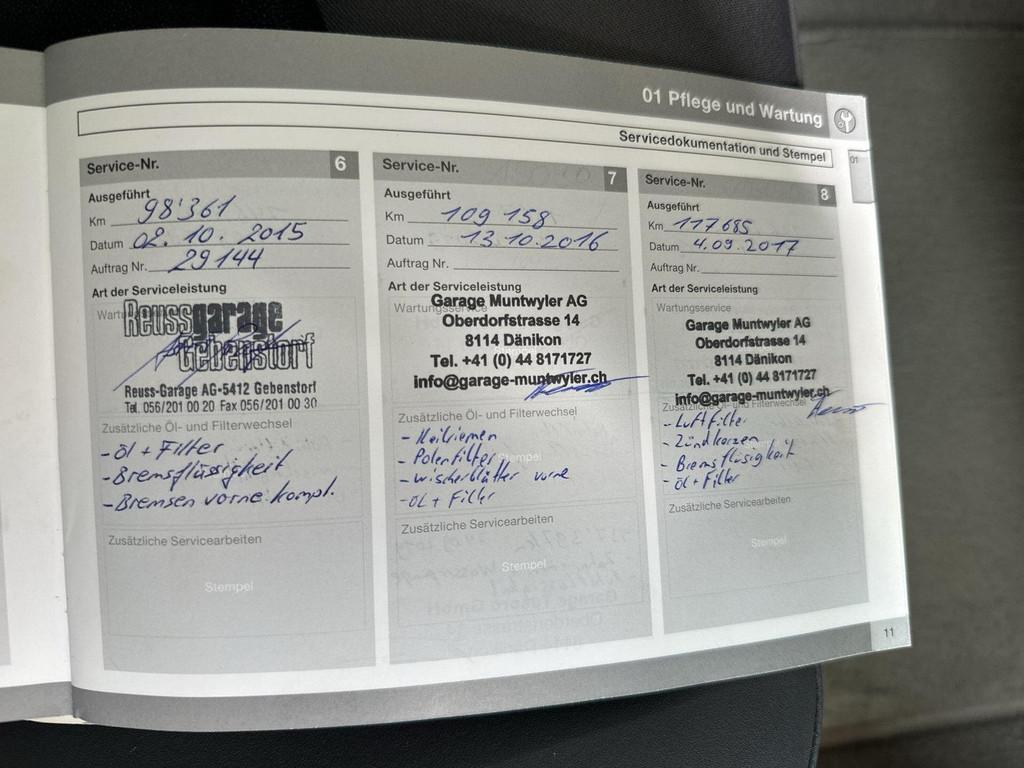 01 Pflege und Wartung
Servicedokumentation und Stempel
01
Service-Nr. 6
Ausgeführt
Km 98'361
Datum 02. 10. 2015
Auftrag Nr. 29144
Art der Serviceleistung
Reussgarage
Gebenstorf
Reuss-Garage AG-5412 Gebenstorf
Tel. 056/201 00 20 Fax 056/201 00 30
Zusätzliche Öl- und Filterwechsel
- Öl + Filter
- Bremsflüssigkeit
- Bremsen vorne kompl.
Zusätzliche Servicearbeiten
Stempel
Service-Nr. 7
Ausgeführt
Km 109 158
Datum 13.10.2016
Auftrag Nr.
Art der Serviceleistung
Wartungsservice
Garage Muntwyler AG
Oberdorfstrasse 14
8114 Dänikon
Tel. +41 (0) 44 8171727
info@garage-muntwyler.ch
Zusätzliche Öl- und Filterwechsel
- Keilriemen
- Polenfilter
Stempel
- Wischerblätter vorne
- Öl + Filter
Zusätzliche Servicearbeiten
Stempel
Service-Nr. 8
Ausgeführt
Km 117685
Datum 4.09.2017
Auftrag Nr.
Art der Serviceleistung
Wartungsservice
Garage Muntwyler AG
Oberdorfstrasse 14
8114 Dänikon
Tel. +41 (0) 44 8171727
info@garage-muntwyler.ch
Zusätzliche Öl- und Filterwechsel
- Luftfilter
- Zündkerzen
- Bremsflüsigkeit
- Öl + Filter
Zusätzliche Servicearbeiten
Stempel
11